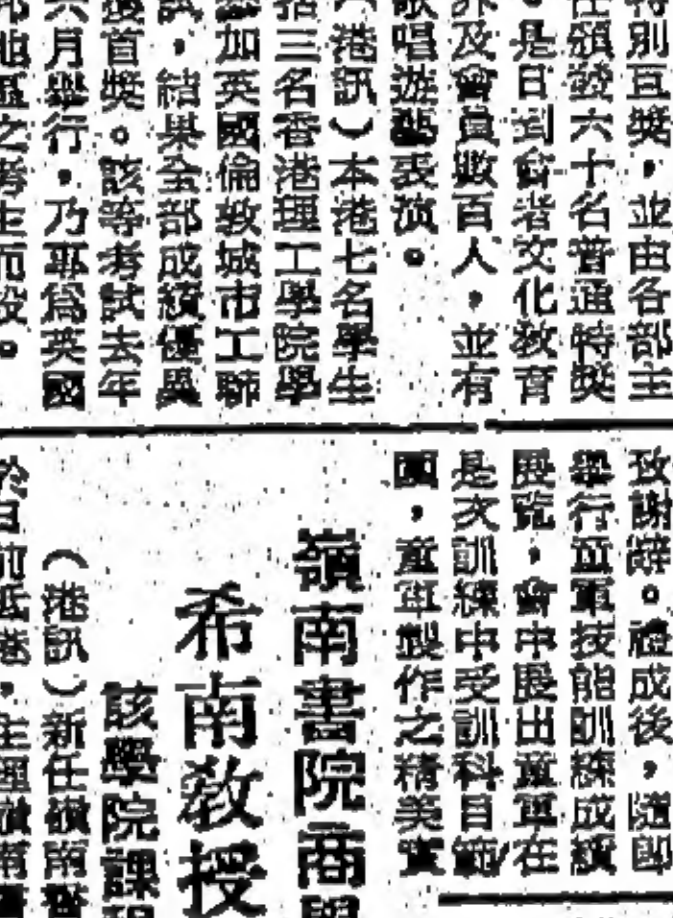 特別豆獎，並由各部主
任頒發六十名普通特獎
。是日到會者文化教育
界及會員數百人，並有
歌唱遊藝表演。
（港訊）本港七名學生
括三名香港理工學院學
參加英國倫敦城市工聯
試，結果全部成績優異
獲首獎。該等考試去年
六月舉行，乃專爲英國
地區之考生而設。
致謝辭。禮成後，隨即
舉行童軍技能訓練成績
展覽，會中展出童軍在
是次訓練中受訓科目範
圍，童軍製作之精美實
嶺南書院商學
希南敎授
該學院課程
（港訊）新任嶺南書
於日前抵港，主理嶺南書